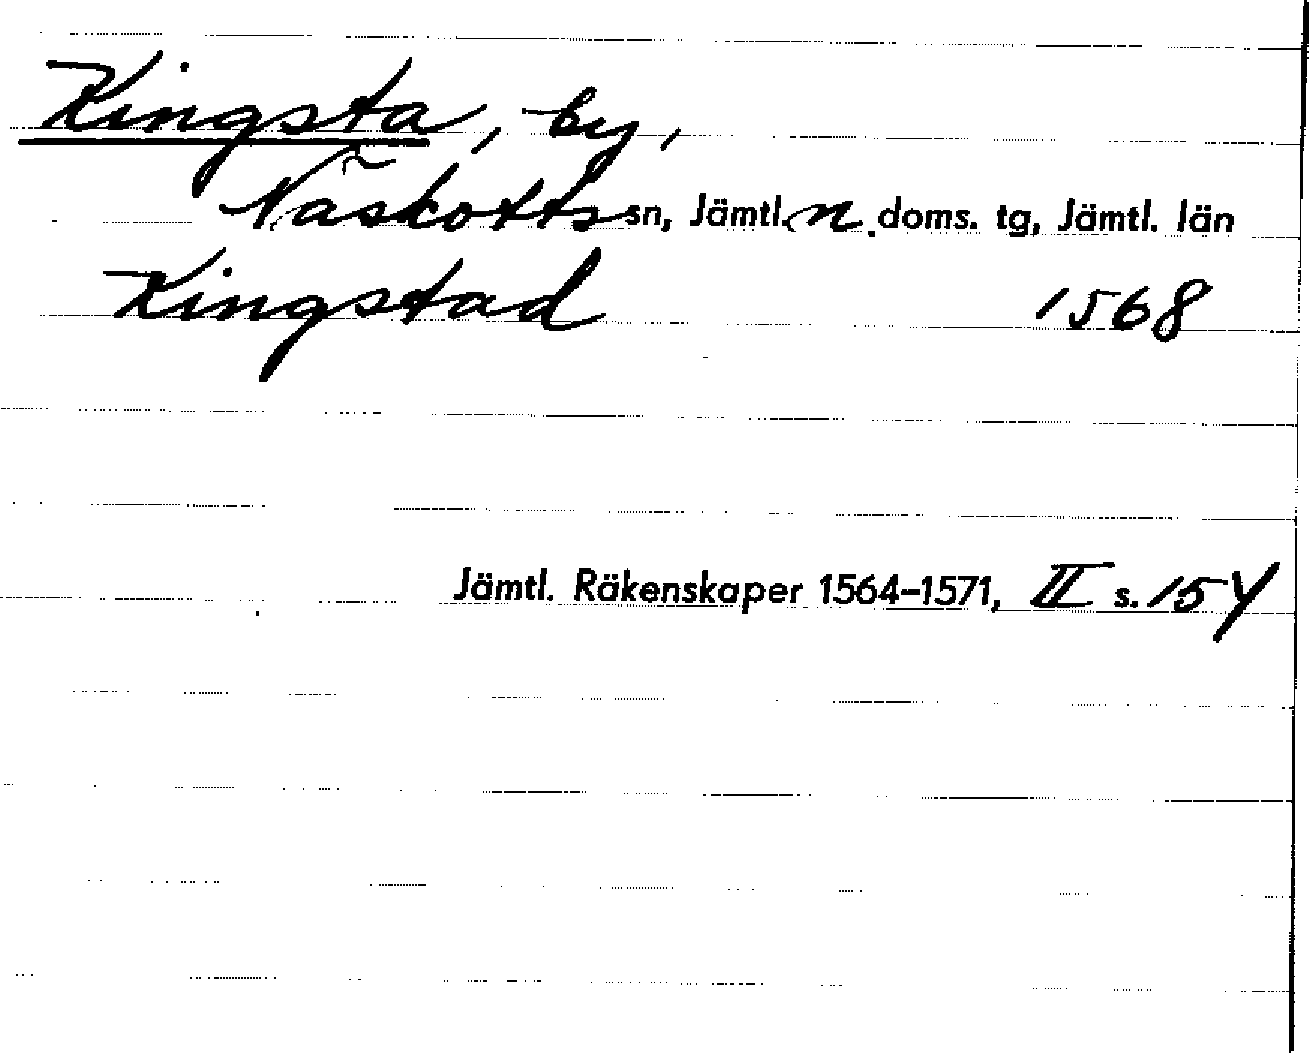 Kingsta, by,
Näskotts sn, Jämtl. n doms. tg, Jämtl. län
Kingstad 1568
Jämtl. Räkenskaper 1564–1571, II s. 154